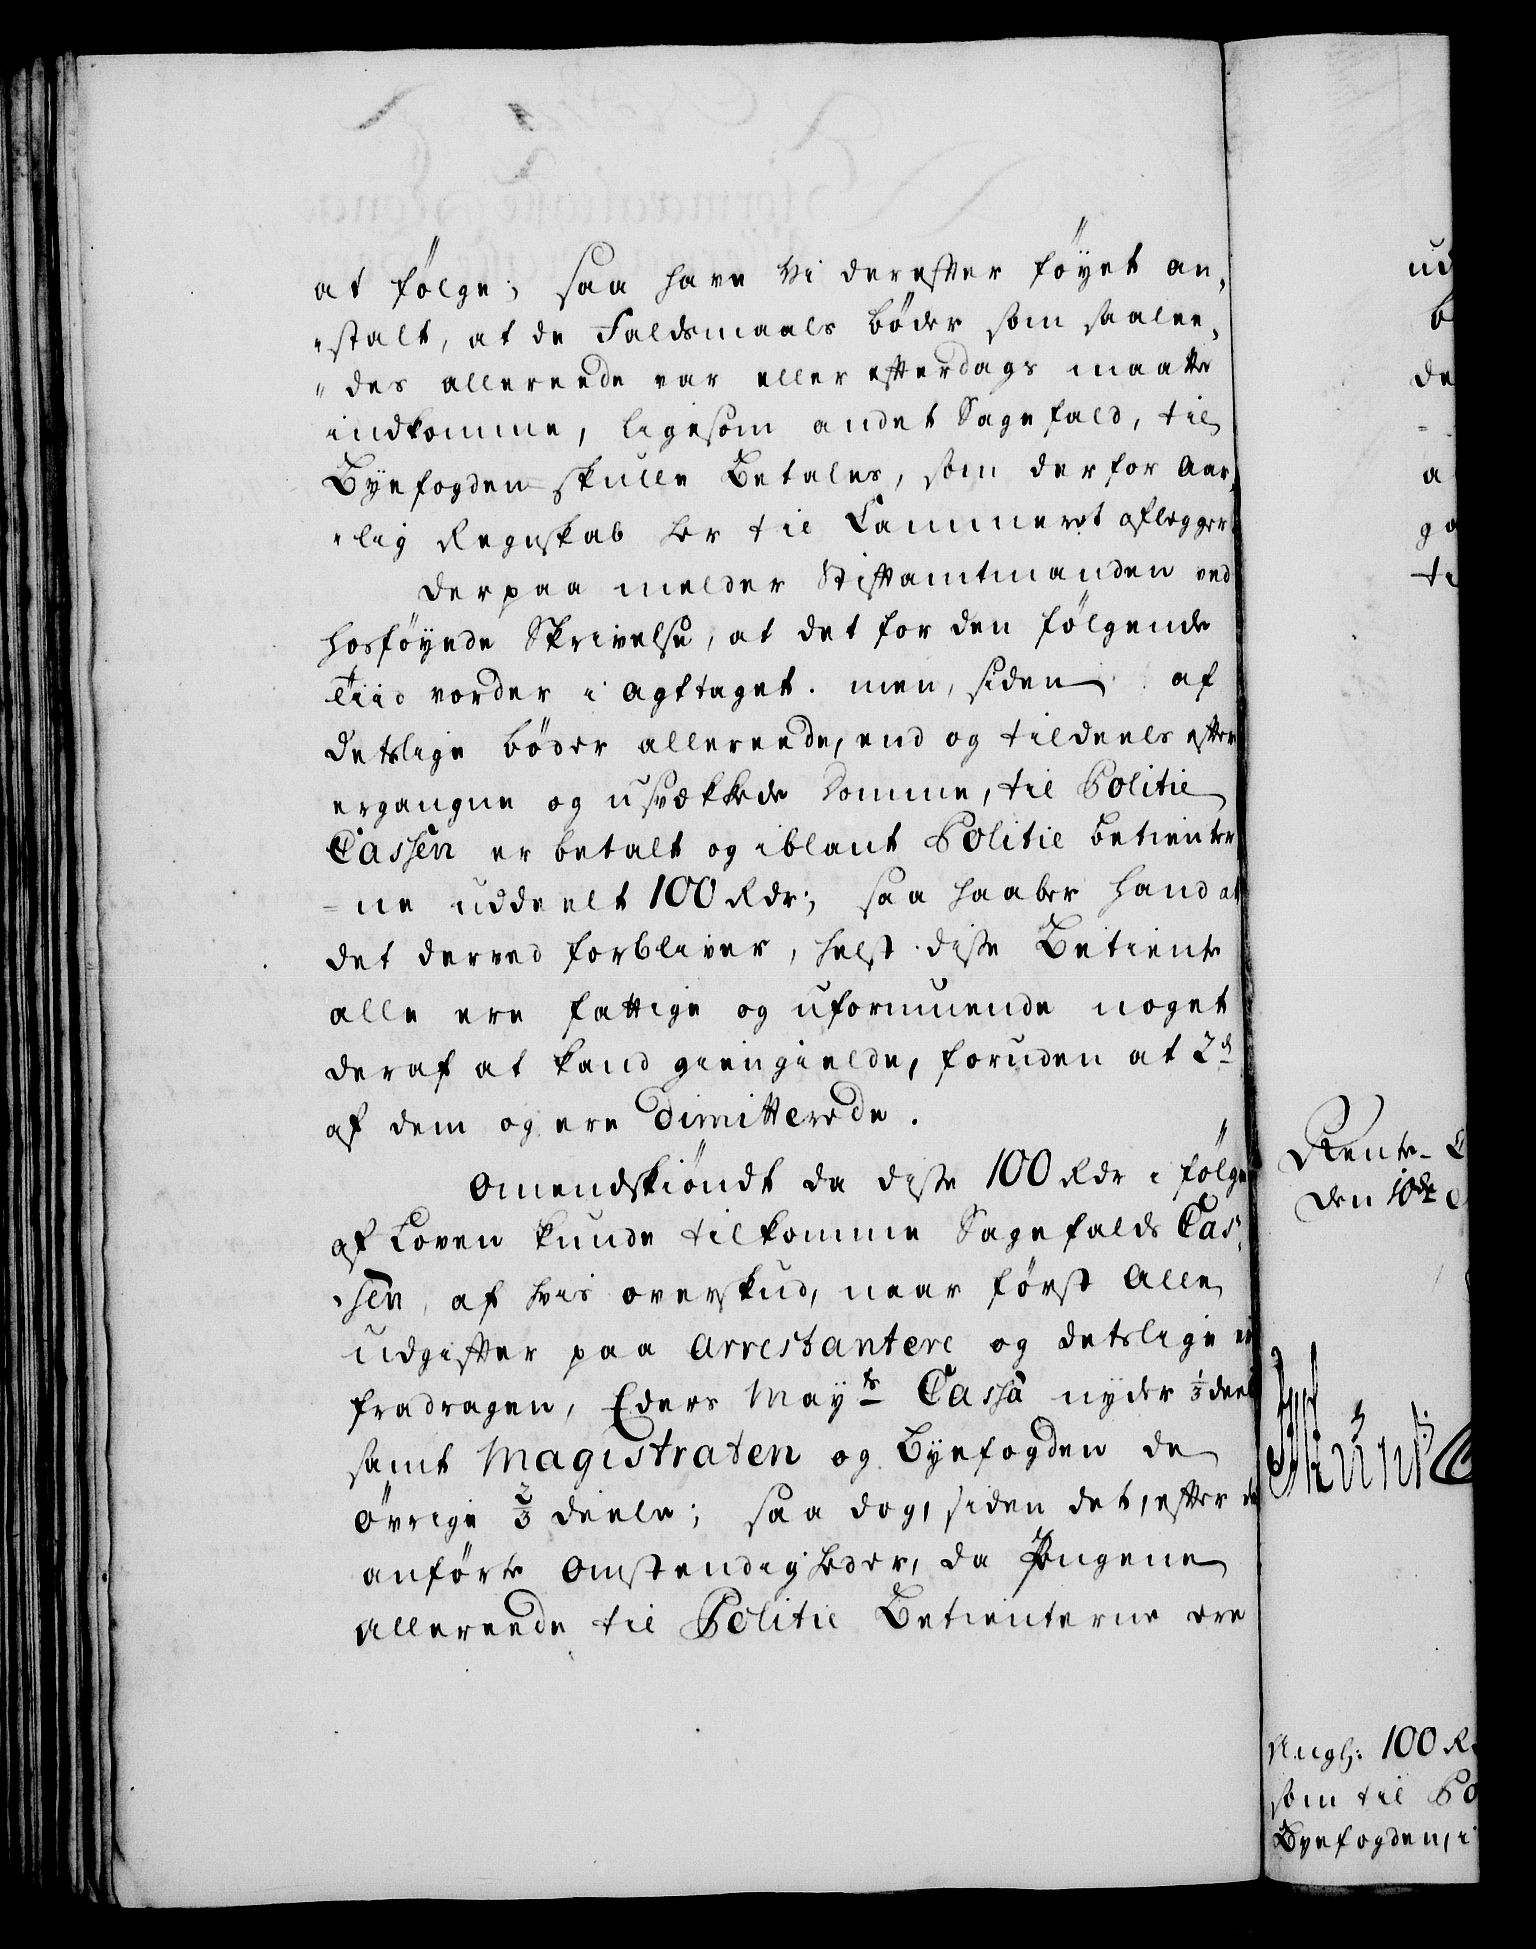 at følge; saa have Vi derefter føyet an„
„stalt, at de Faldsmaals bøder som saalee„
„des allereede var eller efterdags maatte
indkomme, ligesom andet Sagefald, til
Byefogden skulle Betales, som derfor Aar„
„lig Regnskab her til Cammeret aflegger.
Derpaa melder Stiftamtmanden ved
hosføyede Skrivelse, at det for den følgende
Tiid vorder i agttaget. men, siden af
detslige bøder allereede, end og tildeels efter
ergangne og usvækkede Domme, til Politie
Cassen er betalt og iblant Politie betiente
=ne uddeelt 100 Rdr; saa haaber hand at
det derved forbliver, helst disse Betiente
alle ere fattige og uformuende noget
deraf at kand giengielde, foruden at 2de
af dem og ere Dimitterede.
Omendskiøndt da disse 100 Rdr i følge
af Loven kunde tilkomme Sagefalds Cas„
„sen, af hvis overskud, naar først Alle
udgifter paa Arrestantere og detslige er
fradragen, Eders Mayts Cassa nyder 1/3 deel
samt Magistraten og Byefogden de
øvrige 2/3 deele; saa dog, siden det, efter de
anførte Omstendigheder, da Pengene
Allereede til Politie Betienterne ere
Rente-
den 10de
Angl: 100 R
som til Po
Byefogden, i